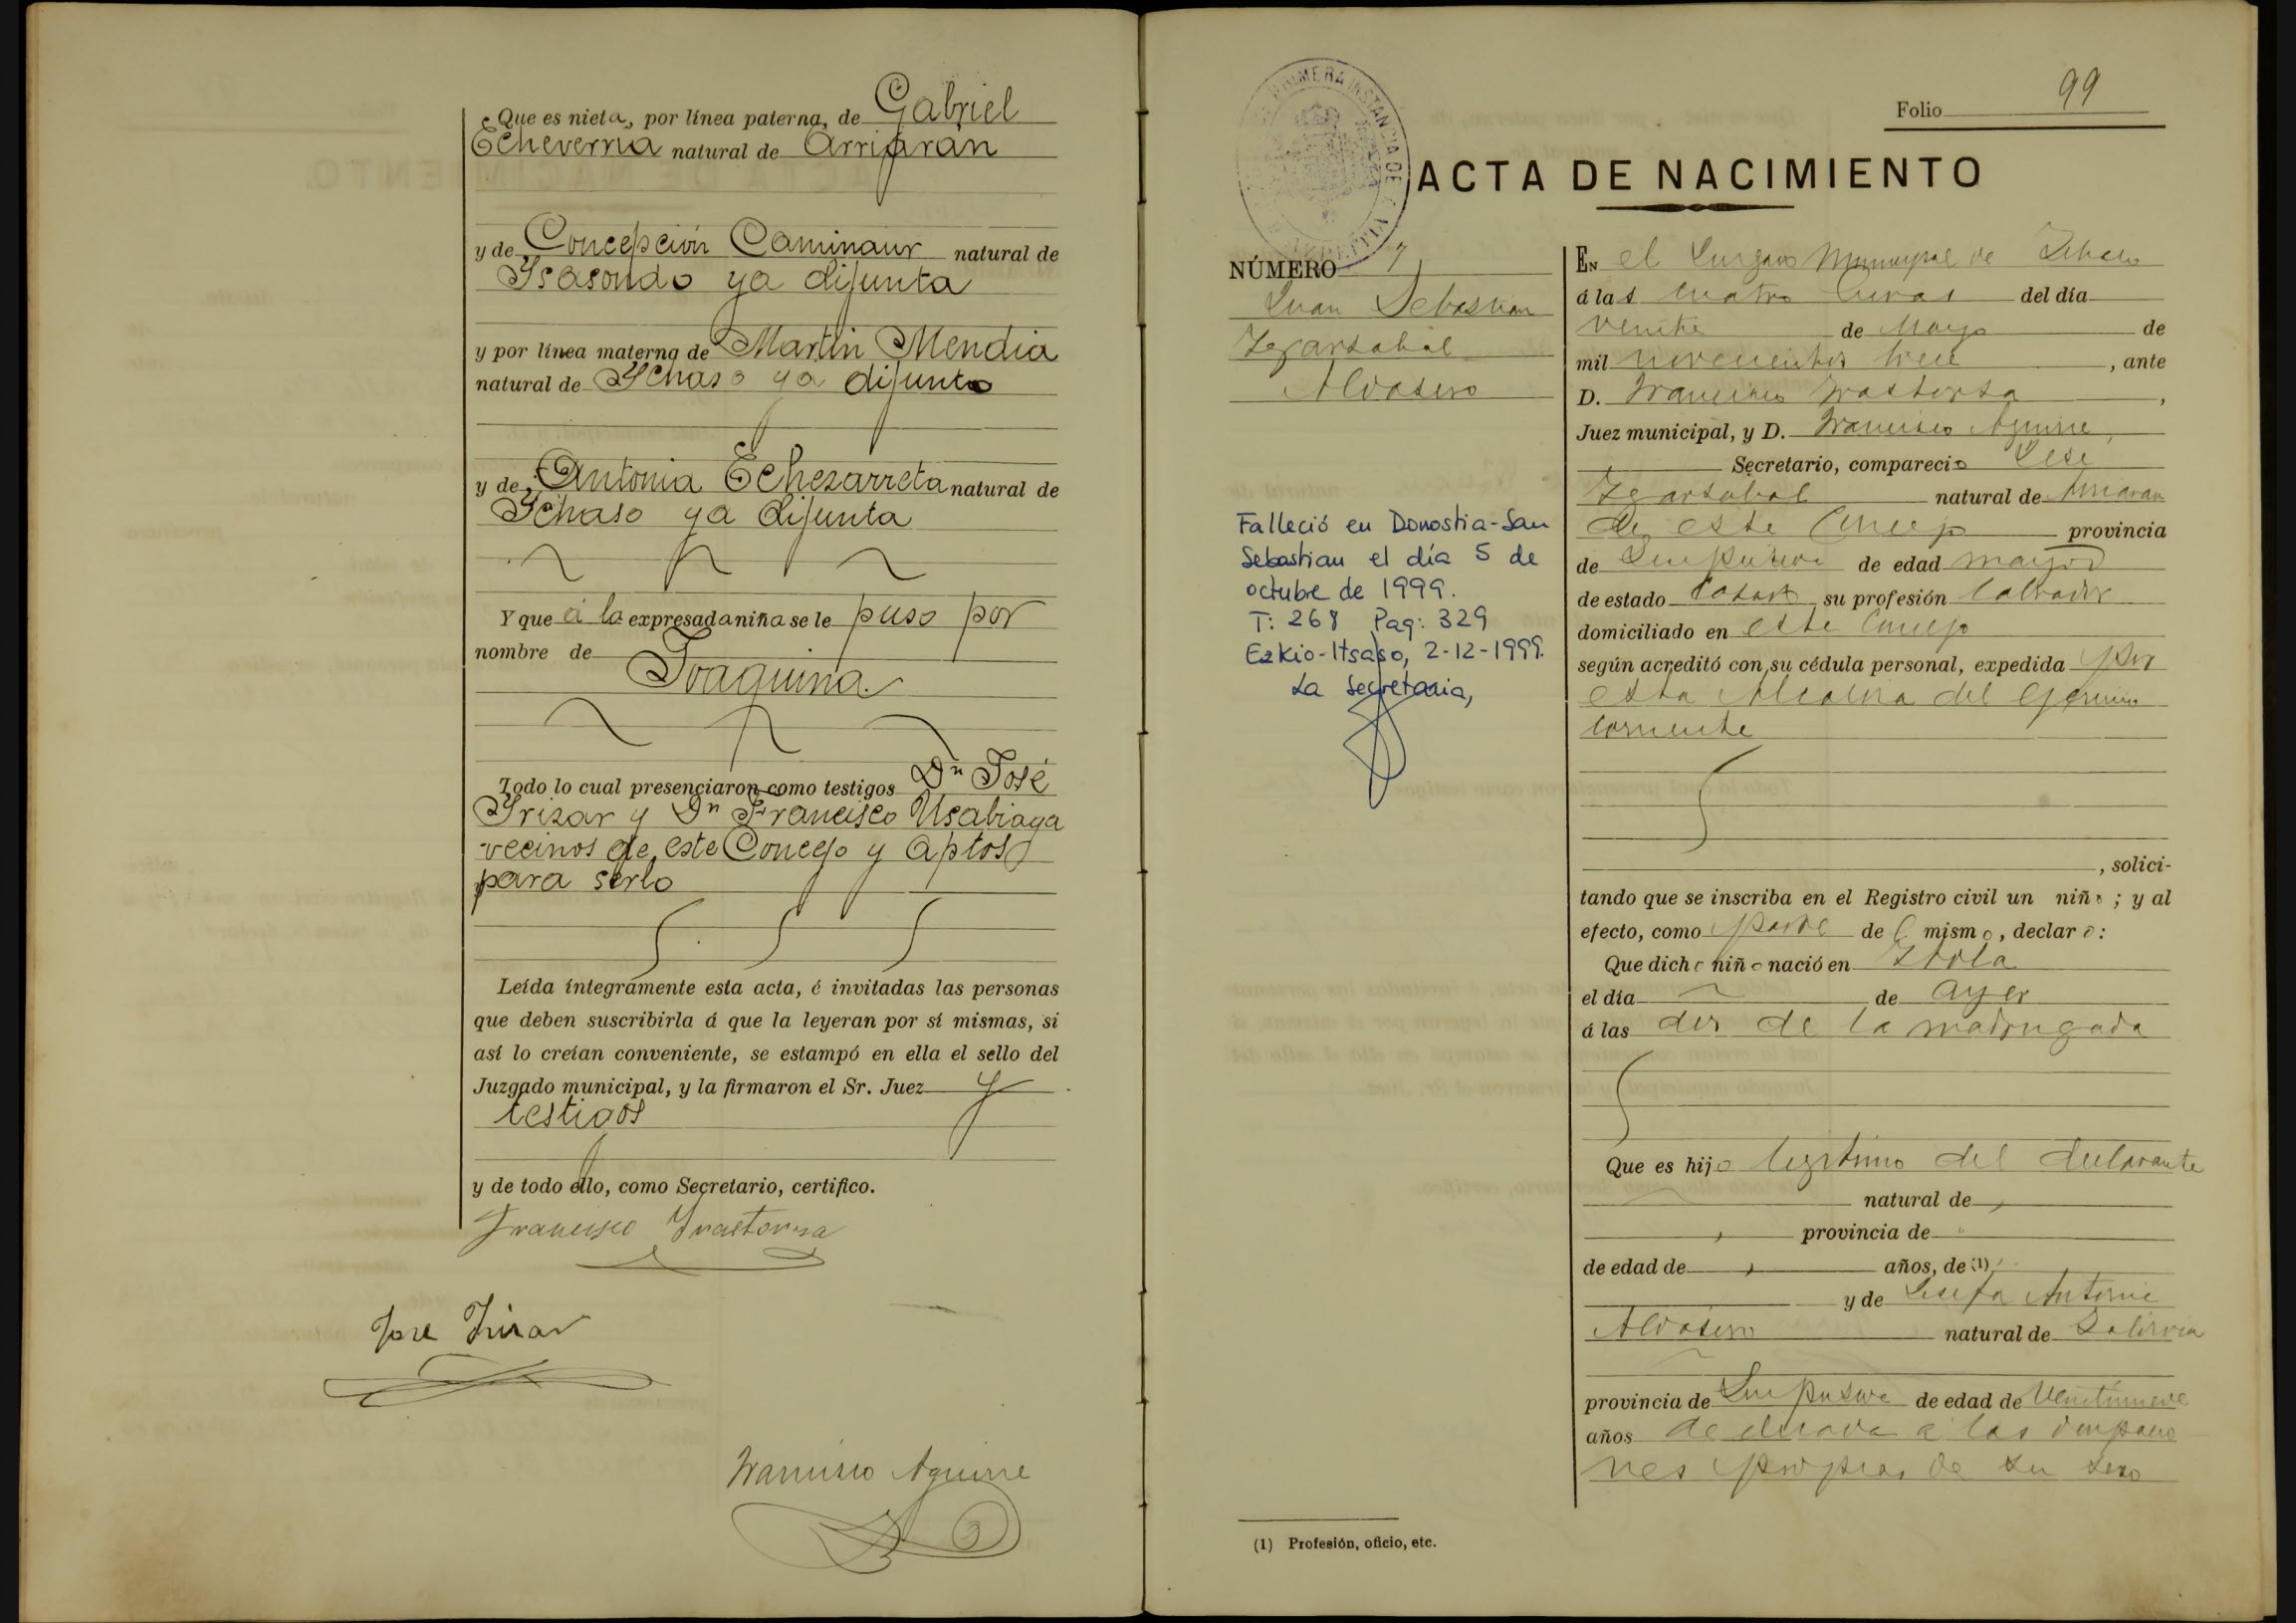 Que es nieta, por línea paterna, de Gabriel
Echeverria natural de Arriarán
y de Concepción Caminaur natural de
Ysasondo ya difunta
y por línea materna de Martin Mendia
natural de Ychaso ya difunto
y de Antonia Echezarreta natural de
Ychaso ya difunta
Y que á la expresada niña se le puso por
nombre de Joaquina.
Todo lo cual presenciaron como testigos Dn José
Yrizar y Dn Francisco Usabiaga
vecinos de este Concejo y aptos
para serlo
Leída íntegramente esta acta, é invitadas las personas
que deben suscribirla á que la leyeran por sí mismas, si
así lo creían conveniente, se estampó en ella el sello del
Juzgado municipal, y la firmaron el Sr. Juez y
testigos
y de todo ello, como Secretario, certifico.
Francisco Yraetorza
Jose Yrizar
Francisco Aguirre
PRIMERA INSTANCIA DE
Folio 99
ACTA DE NACIMIENTO
NÚMERO 7
Juan Sebastian
Aldasoro
Falleció en Donostia-San
Sebastian el día 5 de
octubre de 1999.
T: 268 Pag: 329
Ezkio-Itsaso, 2-12-1999.
La Secretaria,
EN el Juzgado Municipal de Ichaso
á las cuatro horas del día
veinte de Mayo de
mil novecientos trece, ante
D. Francisco
Juez municipal, y D. Francisco Aguirre,
Secretario, compareció José
natural de Arriaran
de este Concejo provincia
de Guipuzcoa de edad mayor
de estado casado su profesión labrador
domiciliado en este Concejo
según acreditó con su cédula personal, expedida por
esta Alcaldia del ejercicio
corriente
, solici-
tando que se inscriba en el Registro civil un niño; y al
efecto, como padre del mismo, declaro:
Que dicho niño nació en
el día de ayer
á las dos de la madrugada
Que es hijo legitimo del declarante
natural de
provincia de
de edad de años, de (1)
y de Josefa Antonia
Aldasoro natural de Zaldivia
provincia de Guipuzcoa de edad de veintinueve
años dedicada a las ocupacio
nes propias de su sexo
(1) Profesión, oficio, etc.